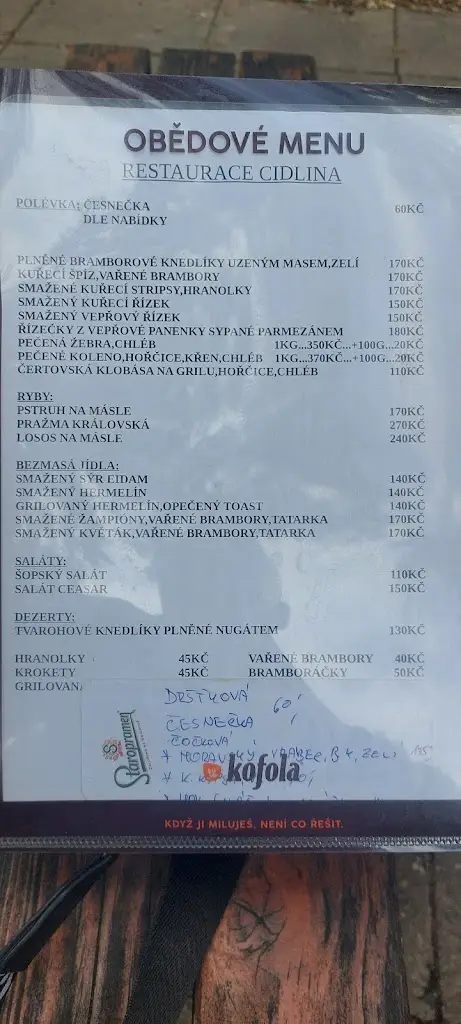 OBĚDOVÉ MENU
RESTAURACE CIDLINA
POLÉVKA: ČESNEČKA 60KČ
DLE NABÍDKY
PLNĚNÉ BRAMBOROVÉ KNEDLÍKY UZENÝM MASEM,ZELÍ 170KČ
KUŘECÍ ŠPÍZ,VAŘENÉ BRAMBORY 170KČ
SMAŽENÉ KUŘECÍ STRIPSY,HRANOLKY 170KČ
SMAŽENÝ KUŘECÍ ŘÍZEK 150KČ
SMAŽENÝ VEPŘOVÝ ŘÍZEK 150KČ
ŘÍZEČKY Z VEPŘOVÉ PANENKY SYPANÉ PARMEZÁNEM 180KČ
PEČENÁ ŽEBRA,CHLÉB 1KG...350KČ...+100G...20KČ
PEČENÉ KOLENO,HOŘČICE,KŘEN,CHLÉB 1KG...370KČ...+100G...20KČ
ČERTOVSKÁ KLOBÁSA NA GRILU,HOŘČICE,CHLÉB 110KČ
RYBY:
PSTRUH NA MÁSLE 170KČ
PRAŽMA KRÁLOVSKÁ 270KČ
LOSOS NA MÁSLE 240KČ
BEZMASÁ JÍDLA:
SMAŽENÝ SÝR EIDAM 140KČ
SMAŽENÝ HERMELÍN 140KČ
GRILOVANÝ HERMELÍN,OPEČENÝ TOAST 140KČ
SMAŽENÉ ŽAMPIÓNY,VAŘENÉ BRAMBORY,TATARKA 170KČ
SMAŽENÝ KVĚTÁK,VAŘENÉ BRAMBORY,TATARKA 170KČ
SALÁTY:
ŠOPSKÝ SALÁT 110KČ
SALÁT CEASAR 150KČ
DEZERTY:
TVAROHOVÉ KNEDLÍKY PLNĚNÉ NUGÁTEM 130KČ
HRANOLKY 45KČ VAŘENÉ BRAMBORY 40KČ
KROKETY 45KČ BRAMBORÁČKY 50KČ
DRŠŤKOVÁ 60
ČESNEČKA
ČOČKOVÁ
* MORAVSKÝ VRABEC, BK, ZELÍ
Staropramen
kofola
KDYŽ JI MILUJEŠ, NENÍ CO ŘEŠIT.